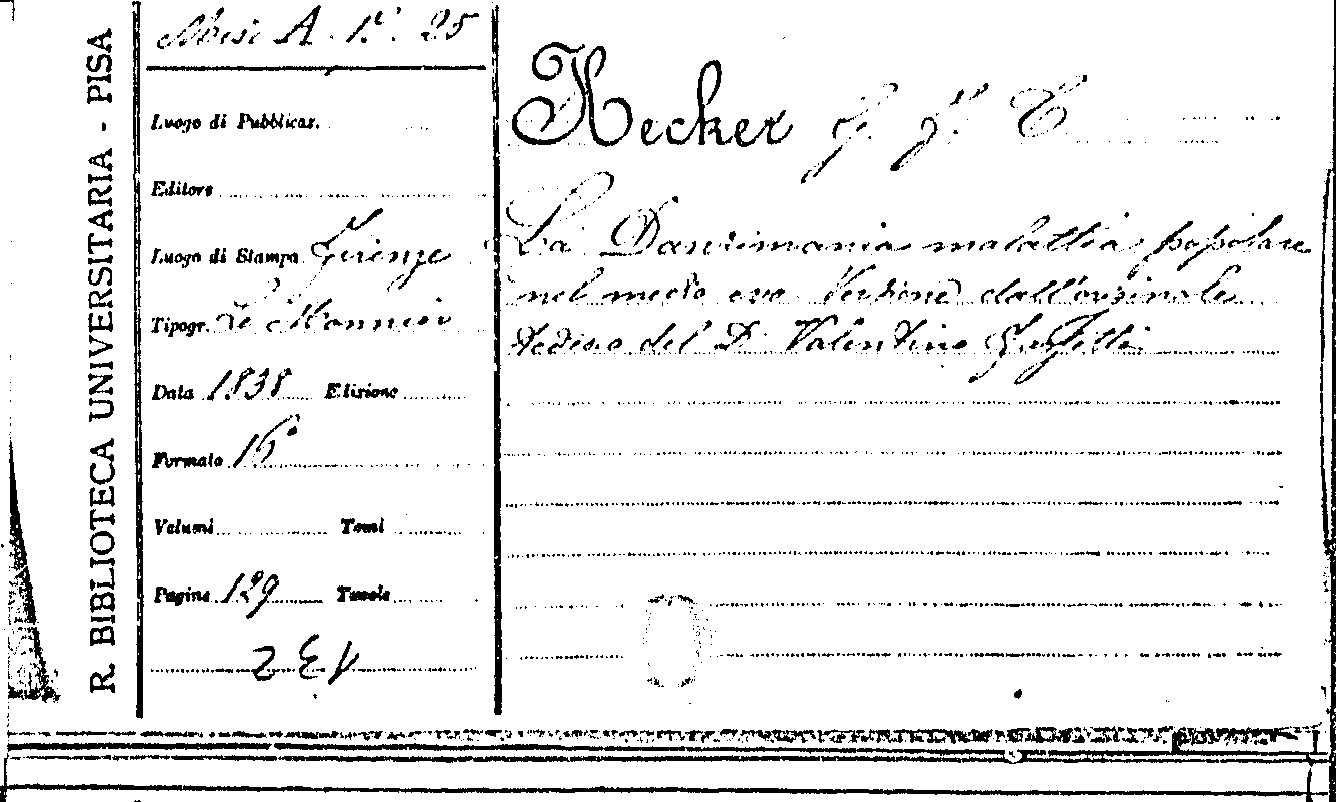 R. BIBLIOTECA UNIVERSITARIA - PISA
Misc A. 1.º 25
Luogo di Pubblicaz.
Editore
Luogo di Stampa Firenze
Tipogr. Le Monnier
Data 1838 Edizione
Formato 16º
Volumi Tomi
Pagine 129 Tavole
Hecker J. F. C
La Danzimania malattia popolare
nel medio evo Versione dall'originale
tedesco del Dr Valentino Fassetti